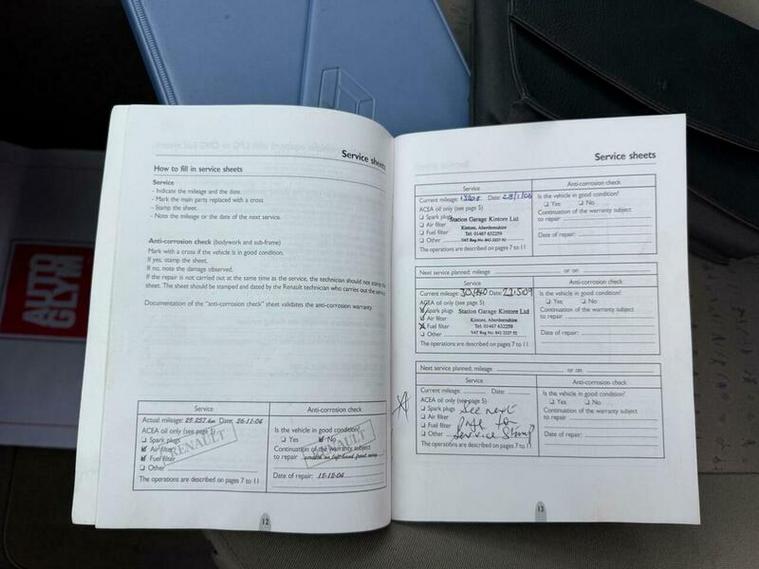 Service sheets
How to fill in service sheets
Service
- Indicate the mileage and the date.
- Mark the main parts replaced with a cross
- Stamp the sheet.
- Note the mileage or the date of the next service.
Anti-corrosion check (bodywork and sub-frame)
Mark with a cross if the vehicle is in good condition.
If yes, stamp the sheet.
If no, note the damage observed.
If the repair is not carried out at the same time as the service, the technician should not stamp the
sheet. The sheet should be stamped and dated by the Renault technician who carries out the service
Documentation of the "anti-corrosion check" sheet validates the anti-corrosion warranty.
Service
Anti-corrosion check
Actual mileage: Date: 26-11-04
ACEA oil only (see page 5)
Spark plugs
Air filter
Fuel filter
Other
The operations are described on pages 7 to 11
RENAULT
Is the vehicle in good condition?
Yes No
Continuation of the warranty subject
to repair
RENAULT
Date of repair: 15-12-04
12
Service sheets
Service
Anti-corrosion check
Current mileage: Date: 23/1/06
ACEA oil only (see page 5)
Spark plugs
Air filter
Fuel filter
Other
Station Garage Kintore Ltd
Kintore, Aberdeenshire
Tel: 01467 632259
The operations are described on pages 7 to 11
Is the vehicle in good condition?
Yes No
Continuation of the warranty subject
to repair
Date of repair:
Next service planned: mileage or on
Service
Anti-corrosion check
Current mileage: Date: 21.5.07
ACEA oil only (see page 5)
Spark plugs
Air filter
Fuel filter
Other
Station Garage Kintore Ltd
Kintore, Aberdeenshire
Tel: 01467 632259
The operations are described on pages 7 to 11
Is the vehicle in good condition?
Yes No
Continuation of the warranty subject
to repair
Date of repair:
Next service planned: mileage or on
Service
Anti-corrosion check
Current mileage: Date:
ACEA oil only (see page 5)
Spark plugs
Air filter
Fuel filter
Other
See next
Page for
Service Stamp
The operations are described on pages 7 to 11
Is the vehicle in good condition?
Yes No
Continuation of the warranty subject
to repair
Date of repair:
13
AUTO
GLYM